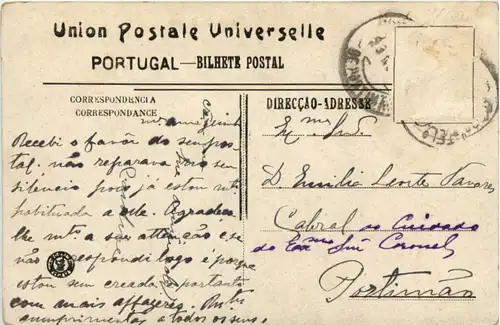 Union Postale Universelle
PORTUGAL—BILHETE POSTAL
CORRESPONDENCIA
CORRESPONDANCE
DIRECÇAO-ADRESSE
Recebi o favôr do seu pos
tal, não reparava no seu
silencio pois já estou mto
habituada a elle. Agradeço
lhe mto a sua attenção e se
não respondi logo é porque
estou sem creada, portanto
com mais affazeres.
cumprimentos a todos os seus.
Exma Snra
D. Emilia Leote Tavares
Cabral ao Cuidado
do Exmo Snr Coronel
Portimão